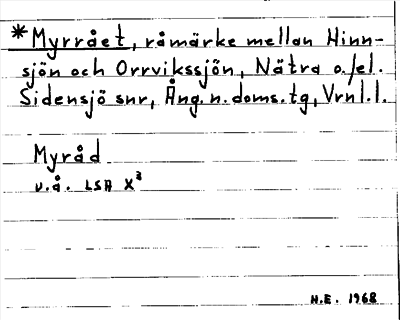 *Myrrået, råmärke mellan Hinn-
sjön och Orrvikssjön, Nätra o./el.
Sidensjö snr, Ång.n.doms.tg, Vrnl.l.
Myråd
u.å. LSA X³
H.E. 1968